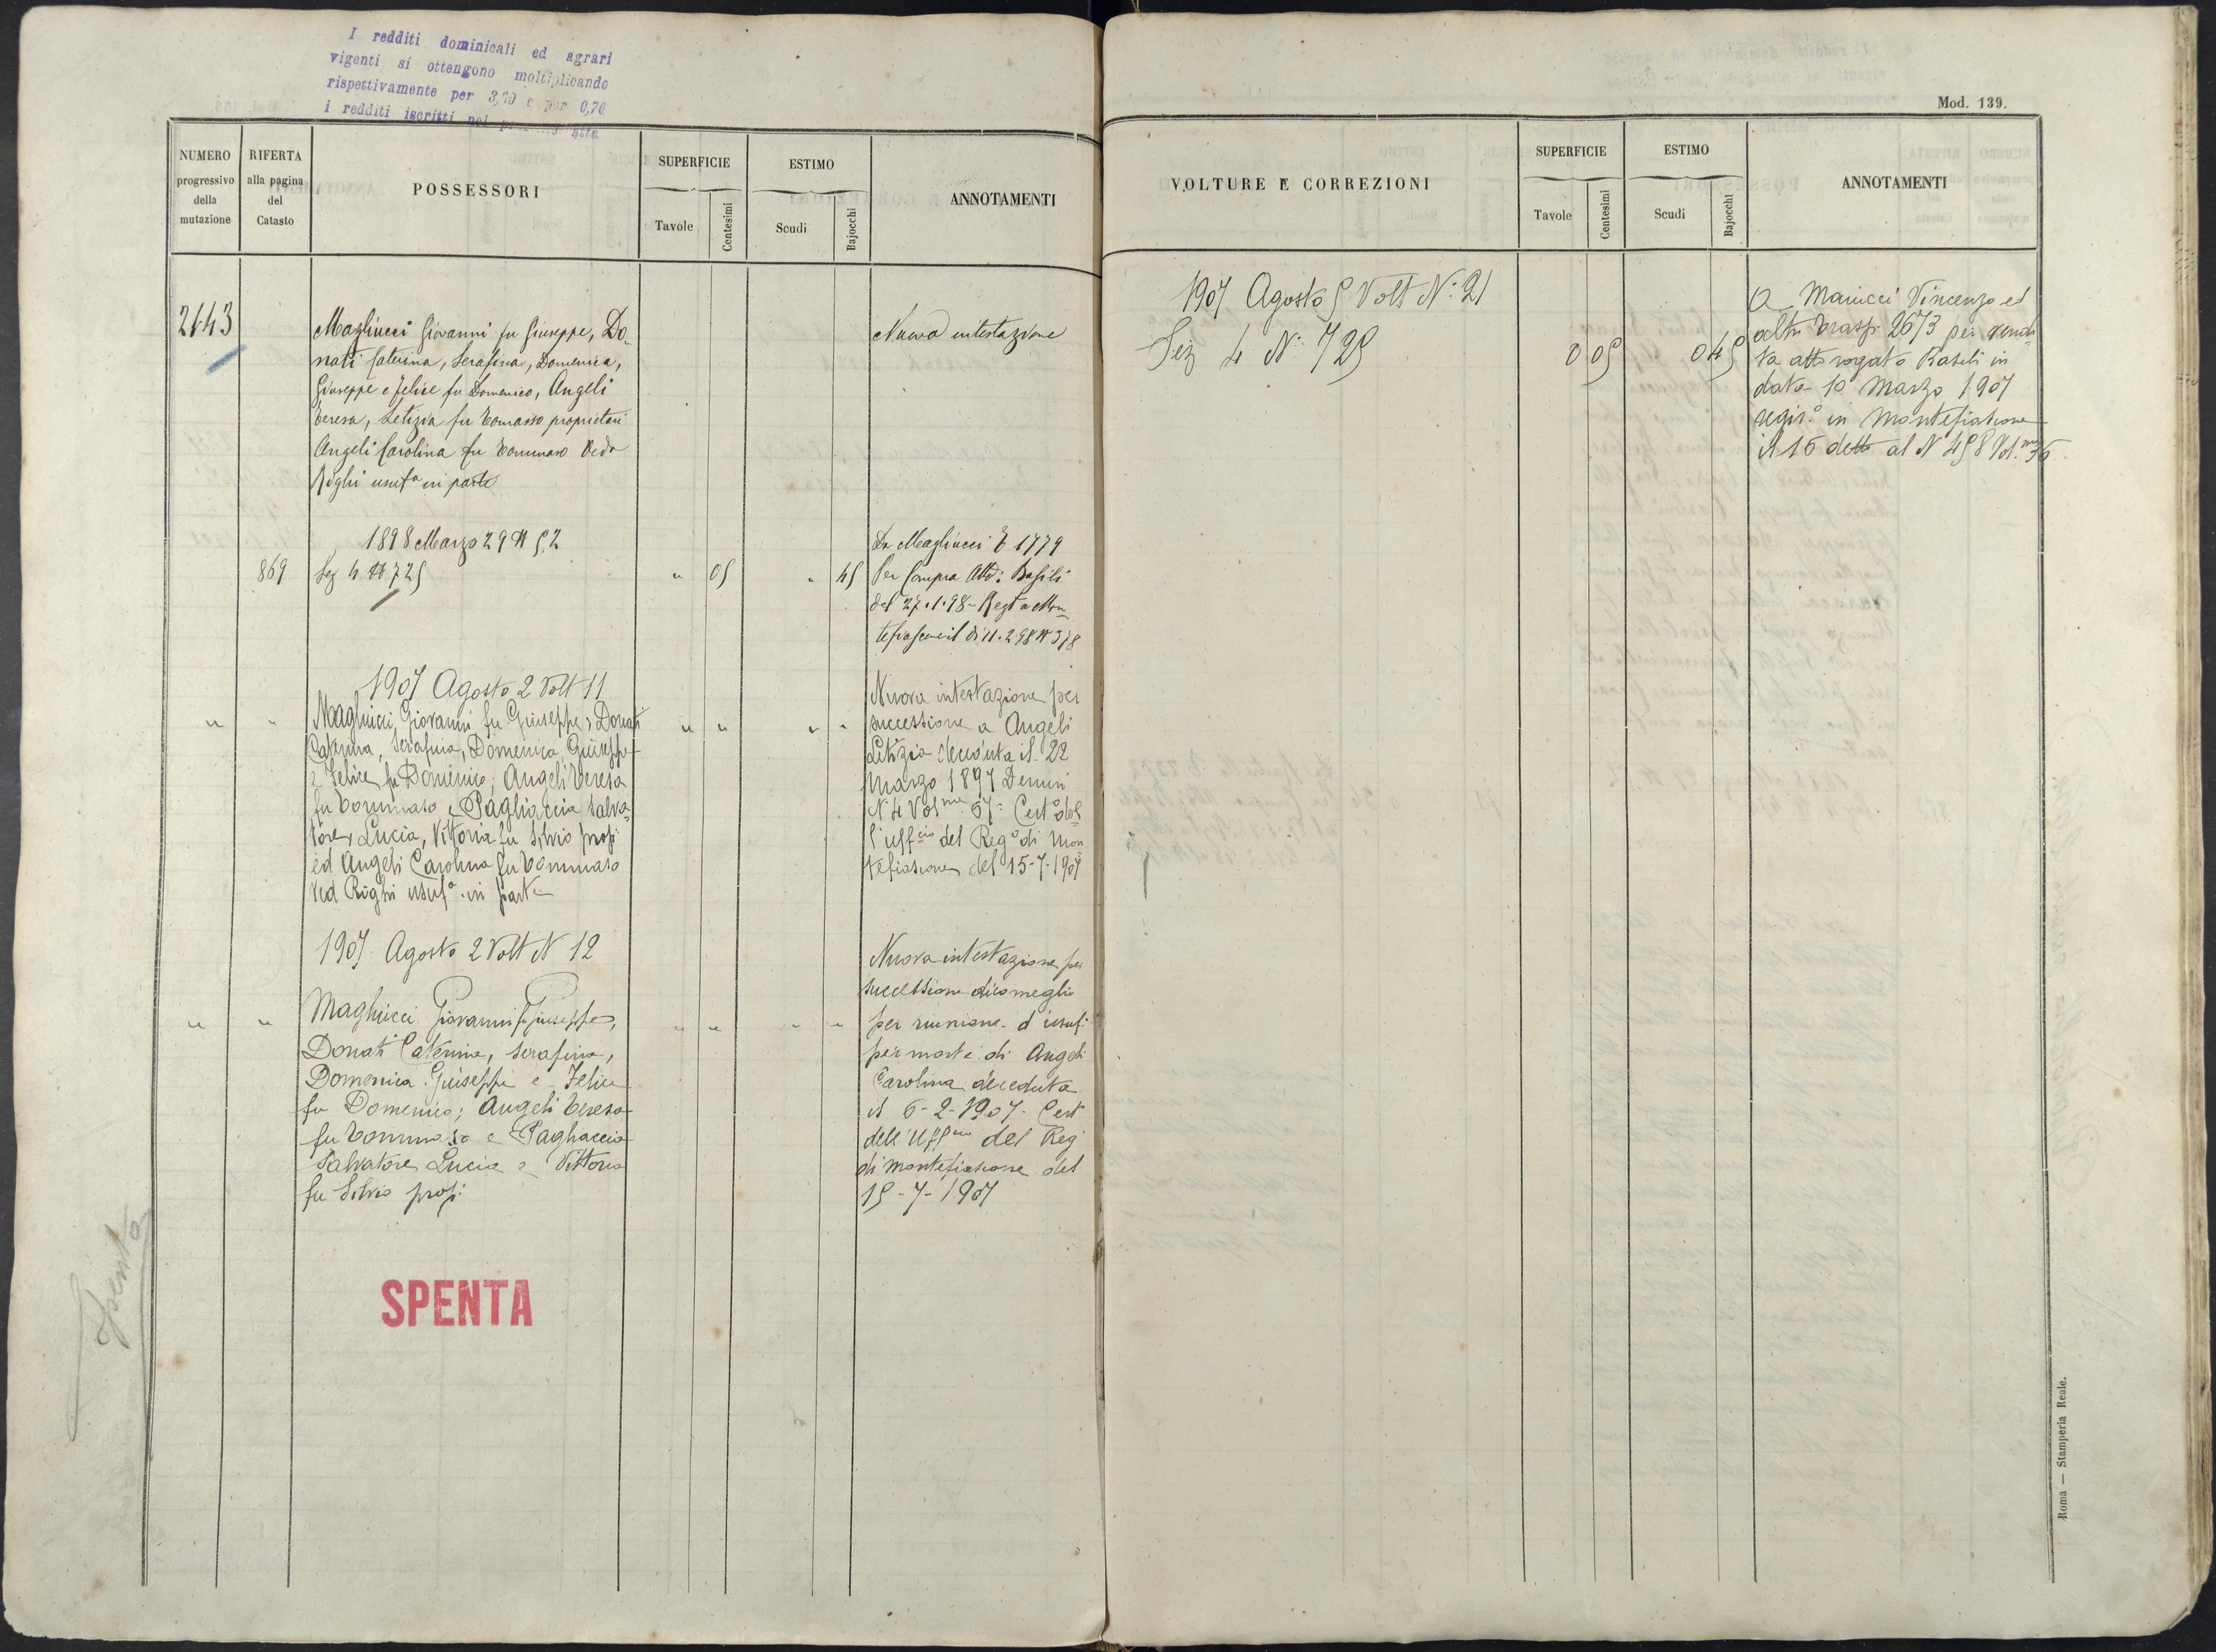 I redditi dominicali ed agrari
vigenti si ottengono moltiplicando
rispettivamente per 3,90 e per 0,70
i redditi iscritti nel atto
NUMERO
progressivo
della
mutazione
RIFERTA
alla pagina
del
Catasto
POSSESSORI
SUPERFICIE
Tavole
Centesimi
ESTIMO
Scudi
Bajocchi
ANNOTAMENTI
2143
Magliucci Giovanni fu Giuseppe, Do-
nati Caterina, Serafina, Domenica,
Giuseppe e Felice fu Domenico, Angeli
Teresa, Letizia fu Tomasso proprietari
Angeli Carolina fu Tommaso Veda
Righi usufa in parte
Nuova intestazione
1898 Marzo 29 N 52
869 Sez 4 N 725 " 05 " 45
Da Magliucci T 1779
Per Compra Atto: Basili
del 27.1.98 - Regto a Mon-
tefiascone il dì 11.2.98 N 378
1907 Agosto 2 Volt 11
" " Magliucci Giovanni fu Giuseppe, Donati " " " "
Caterina, Serafina, Domenica, Giuseppe
e Felice fu Domenico; Angeli Teresa
fu Tommaso e Pagliaccia Salva-
tore, Lucia, Vittoria fu Silvio prop:
ed Angeli Carolina fu Tommaso
ved Righi usufa in parte
Nuova intestazione per
successione a Angeli
Letizia deceduta il 22
Marzo 1897 Denun
N 4 Volme 67 = Certo del-
l'uffcio del Rego di Mon-
tefiascone del 15-7-1907
1907 Agosto 2 Volt N 12
" " Magliucci Giovanni fu Giuseppe, " " " "
Donati Caterina, Serafina,
Domenica Giuseppe e Felice
fu Domenico; Angeli Teresa
fu Tommaso e Pagliaccia
Salvatore Lucia e Vittoria
fu Silvio prop:
Nuova intestazione per
successione dico meglio
per riunione d'usuf:
per morte di Angeli
Carolina deceduta
il 6-2-1907- Cert
dell'Uffcio del Reg
di Montefiascone del
15-7-1907
SPENTA
Spenta
Mod. 139.
VOLTURE E CORREZIONI
SUPERFICIE
Tavole
Centesimi
ESTIMO
Scudi
Bajocchi
ANNOTAMENTI
1907 Agosto 5 Volt N: 21
Sez 4 N: 725 0 05 0 45
A Mariucci Vincenzo ed
altri Trasp. 2673 per vendi-
ta atto rogato Basili in
data 10 Marzo 1907
regiso in Montefiascone
il 16 detto al N 458 Vol.me 36
Roma — Stamperia Reale.